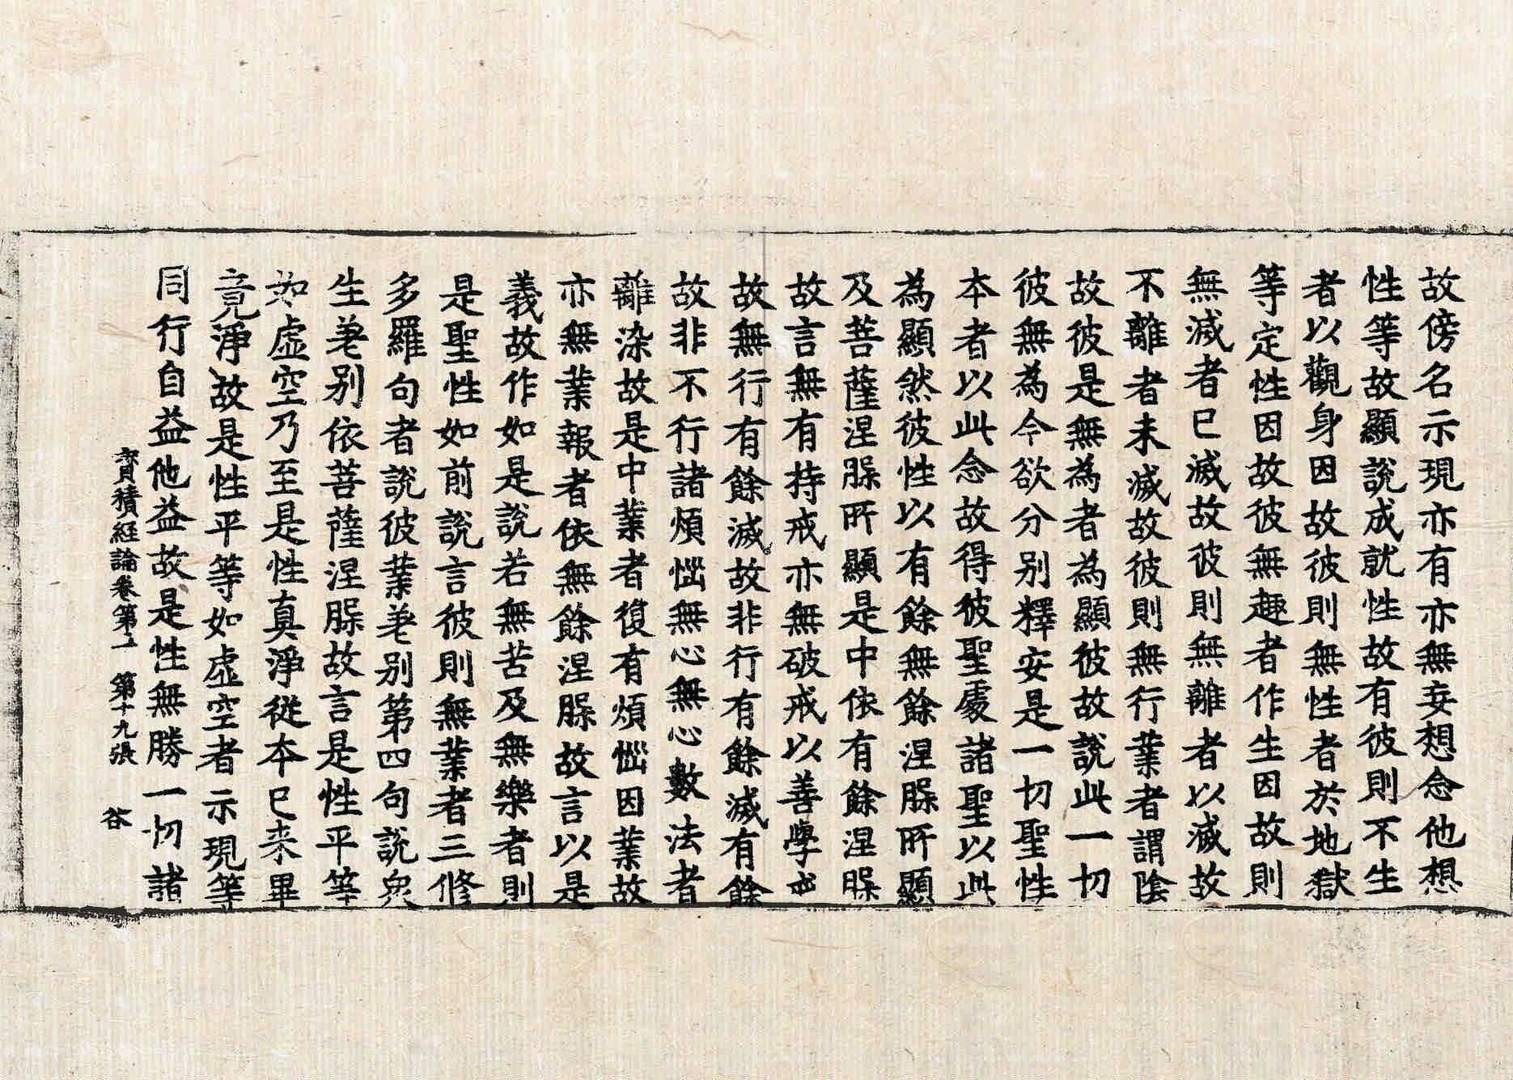 故傍名示現亦有亦無妄想念他想
性等故顯説成就性故有彼則不生
者以觀身因故彼則無性者於地獄
等定性因故彼無趣者作生因故則
無減者已滅故彼則無離者以滅故
不離者未滅故彼則無行業者謂陰
故彼是無為者為顯彼故説此一切
彼無為今欲分别釋安是一切聖性
本者以此念故得彼聖處諸聖以此
為顯然彼性以有餘無餘涅槃所顯
及菩薩涅槃所顯是中依有餘涅槃
故言無有持戒亦無破戒以善學戒
故無行有餘滅故非行有餘滅有餘
故非不行諸煩惱無心無心數法者
離染故是中業者復有煩惱因業故
亦無業報者依無餘涅槃故言以是
義故作如是説若無苦及無樂者則
是聖性如前説言彼則無業者三修
多羅句者説彼業差别第四句説衆
生差别依菩薩涅槃故言是性平等
如虚空乃至是性真淨從本已来畢
竟淨故是性平等如虚空者示現等
同行自益他益故是性無勝一切諸
寳積經論卷第二　第十九張　谷